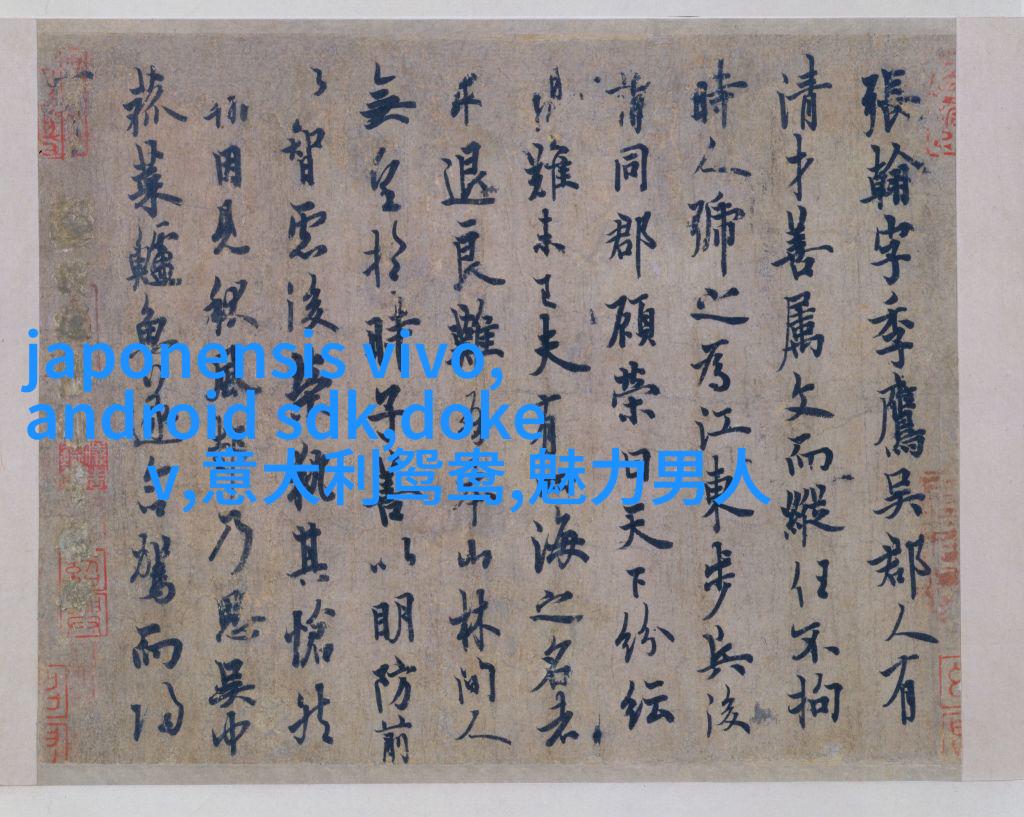 張翰字季鷹吳郡人有
清才善屬文而縱任不拘
時人號之為江東步兵後
謂同郡顧榮曰天下紛紜
難未已夫有四海之名者
求退良難吾本山林間人
無望於時子善以明防前
以智慮後榮執其愴然
翰因見秋風起乃思吳中
菰菜鱸魚遂命駕而歸
japonensis vivo,
android sdk,doke
v,意大利鸳鸯,魅力男人